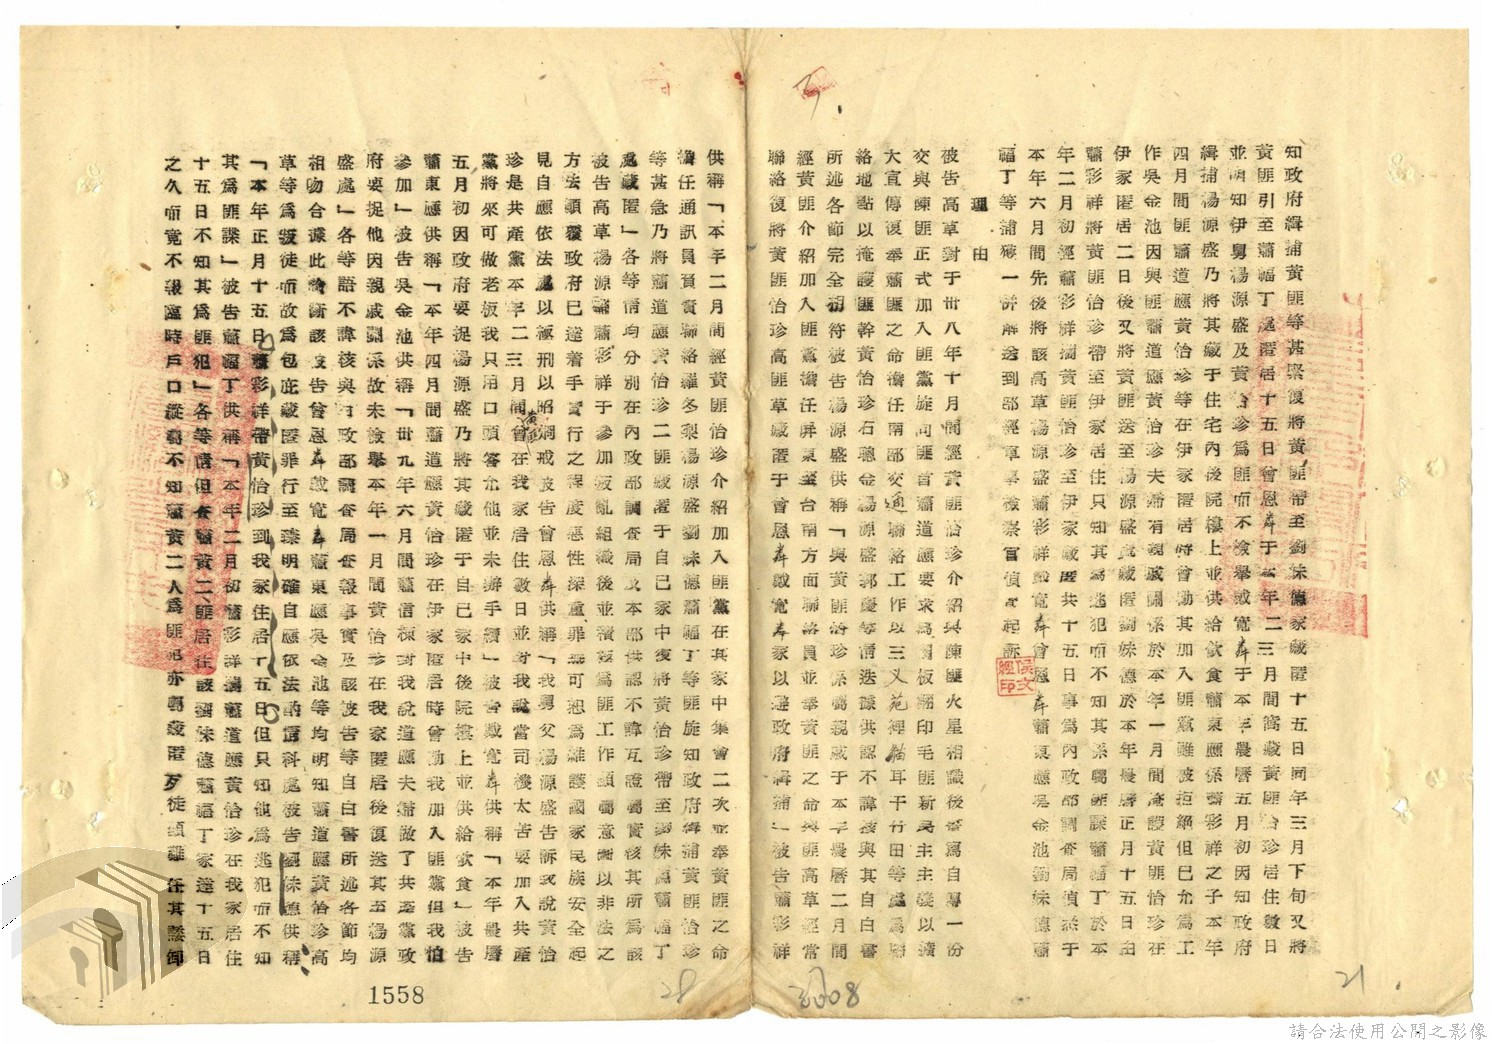 知政府緝捕黃匪等甚緊復將黃匪帶至劉妹德家藏匿十五日同年三月下旬又將
黃匪引至蕭福丁處匿居十五日曾恩于年二三月間窩藏黃匪怡珍居住數日
並明知伊舅楊源盛及黃怡珍為匪而不檢舉戴寬于本年農曆五月初因知政府
緝捕楊源盛乃將其藏于住宅內後院樓上並供給飲食蕭東應係蕭彩祥之子本年
四月間匪蕭道應黃怡珍等在伊家匿居時曾勸其加入匪黨雖被拒絕但已允為工
作吳金池因與匪蕭道應黃怡珍夫婦有親戚關係於本年一月間掩護黃匪怡珍在
伊家匿居二日後又將黃匪送至楊源盛處藏匿劉妹德於本年農曆正月十五日由
蕭彩祥將黃匪怡珍帶至伊家居住只知其為逃犯而不知其係匪諜蕭福丁於本
年二月初經蕭彩祥攜黃匪怡珍至伊家藏匿共十五日事為內政部調查局偵悉于
本年六月間先後將該高草楊源盛蕭彩祥戴寬曾恩蕭東應吳金池劉妹德蕭
福丁等捕獲一併解送到部經軍事檢察官偵查起訴
理由
被告高草對于卅八年十月間經黃匪怡珍介紹與陳匪火星相識後書寫自傳一份
交與陳匪正式加入匪黨旋向匪首蕭道應要求設板翻印毛匪新民主主義以擴
大宣傳復奉蕭匪之命擔任南部交通聯絡工作以三叉苑裡貓耳干竹田等處為聯
絡地點以掩護匪幹黃怡珍石聰金楊源盛郭慶等情迭據供認不諱核與其自白書
所述各節完全相符被告楊源盛供稱「與黃匪怡珍係屬親戚于本年農曆二月間
經黃匪介紹加入匪黨擔任屏東至台南方面聯絡員並奉黃匪之命與匪高草經常
聯絡復將黃匪怡珍高匪草藏匿于曾恩戴寬家以避政府緝捕」被告蕭彩祥
供稱「本年二月間經黃匪怡珍介紹加入匪黨在其家中集會二次並奉黃匪之命
擔任通訊員負責聯絡羅冬梨楊源盛劉妹德蕭福丁等匪旋知政府緝捕黃匪怡珍
等甚急乃將蕭道應黃怡珍二匪藏匿于自己家中復將黃怡珍帶至劉妹德蕭福丁
處藏匿」各等情均分別在內政部調查局及本部供認不諱互證屬實核其所為該
被告高草楊源盛蕭彩祥于參加叛亂組織後並積極為匪工作顯屬意圖以非法之
方法顛覆政府已達着手實行之程度惡性深重罪無可恕為維護國家民族安全起
見自應依法處以極刑以昭炯戒被告曾恩供稱「我舅父楊源盛告訴我說黃怡
珍是共產黨本年二三月間黃匪會在我家居住數日並對我說當司機太苦要加入共產
黨將來可做老板我只用口頭答允他並未辦手續」被告戴寬供稱「本年農曆
五月初因政府要捉楊源盛乃將其藏匿于自己家中後院樓上並供給飲食」被告
蕭東應供稱「本年四月間蕭道應黃怡珍在伊家匿居時曾勸我加入匪黨但我怕
參加」被告吳金池供稱「卅九年六月間蕭信棟對我說道應夫婦做了共產黨政
府要捉他因親戚關係故未檢舉本年一月間黃怡珍在我家匿居後復送其至楊源
盛處」各等語不諱核與內政部調查局查報事實及該被告等自白書所述各節均
相吻合據此論斷該被告曾恩戴寬蕭東應吳金池等均明知蕭道應黃怡珍高
草等為叛徒而故為包庇藏匿罪行至臻明確自應依法酌情科處被告劉妹德供稱
「本年正月十五日蕭彩祥帶黃怡珍到我家住居十五日但只知他為逃犯而不知
其為匪諜」被告蕭福丁供稱「本年二月初蕭彩祥攜蕭道應黃怡珍在我家居住
十五日不知其為匪犯」各等情但查蕭黃二匪居住該劉妹德蕭福丁家達十五日
之久而竟不報臨時戶口縱謂不知蕭黃二人為匪犯亦屬藏匿歹徒頗難任其諉卸
侯文經印
21
28
1558